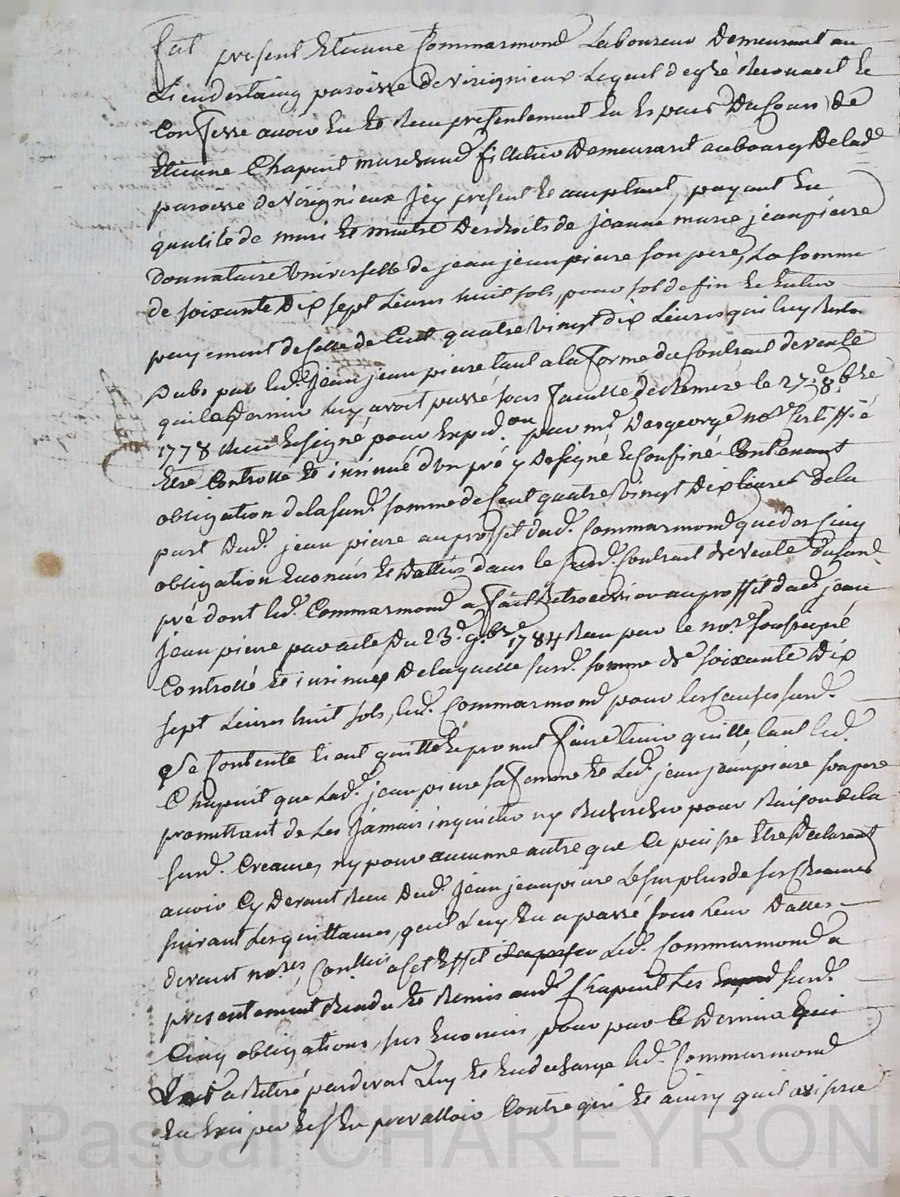 fut present Etienne Commarmond Laboureur demeurant au
Lieu destaing paroisse de virignieux Lequel de gré Reconnoit Et
Confesse avoir Eu Et Reçu presentement En Especes du Cours de
Etienne Chapuit marchand filletier demeurant au bourg de lad.
paroisse de virignieux Icy present Et acceptant, payant En
qualité de mari Et maitre des droits de jeanne marie jeanpierre
donnataire universelle de jean jeanpierre son pere, La somme
de soixante dix sept Livres huit sols, pour sol de fin Et Entier
payement de Celle de Cent quatre vingt dix Livres qui luy Etoit
dubs par led. jean jeanpierre tant a la forme du Contract de vente
que Led. dernier luy avoit passé sous faculté de Remeré le 27e 8bre
1778 Reçu Et signé pour Exped.on par me Dasgeorge no.re Certiffié
Etre Controllé Et insinué d'un pré y designé Et Confiné Contenant
obligation de la surd. somme de Cent quatre vingt dix livres de la
part dud. jean pierre au proffit dud. Commarmond que de Cinq
obligation Enoncés Et dattées dans le susd. Contract de vente dusand.
pré dont led. Commarmond a fait Retrocession au proffit dud. jean
jeanpierre par acte du 23e 9bre 1784 Reçu par le no.re soussigné
Controllé Et insinué, de laquelle surd. somme de soixante dix
sept Livres huit sols, led. Commarmond pour les Causes surd.
Se Contente Et ont quitté Et promet faire tenir quitte, tant led.
Chapuit que lad. jeanpierre sa femme Et led. jean jeanpierre son pere
promettant de Les jamais inquieter ny Rechercher pour Raison de la
surd. Creance, ny pour aucunne autre que Ce puisse Etre Declarant
avoir Cy devant Reçu dud. jean jeanpierre le surplus de ses Creances
suivant Les quittances, quil luy En a passé sous Leur dattes
devant no.res, a Cet Effet led. Commarmond a
presentement Rendu Et Remis aud. Chapuit Les surd.
Cinq obligations, sus Enoncés, pour par Ce dernier qui
Les a Retiré pardevers Luy Et En decharge led. Commarmond
En prevalloir Contre qui Et ainsy quil avisera